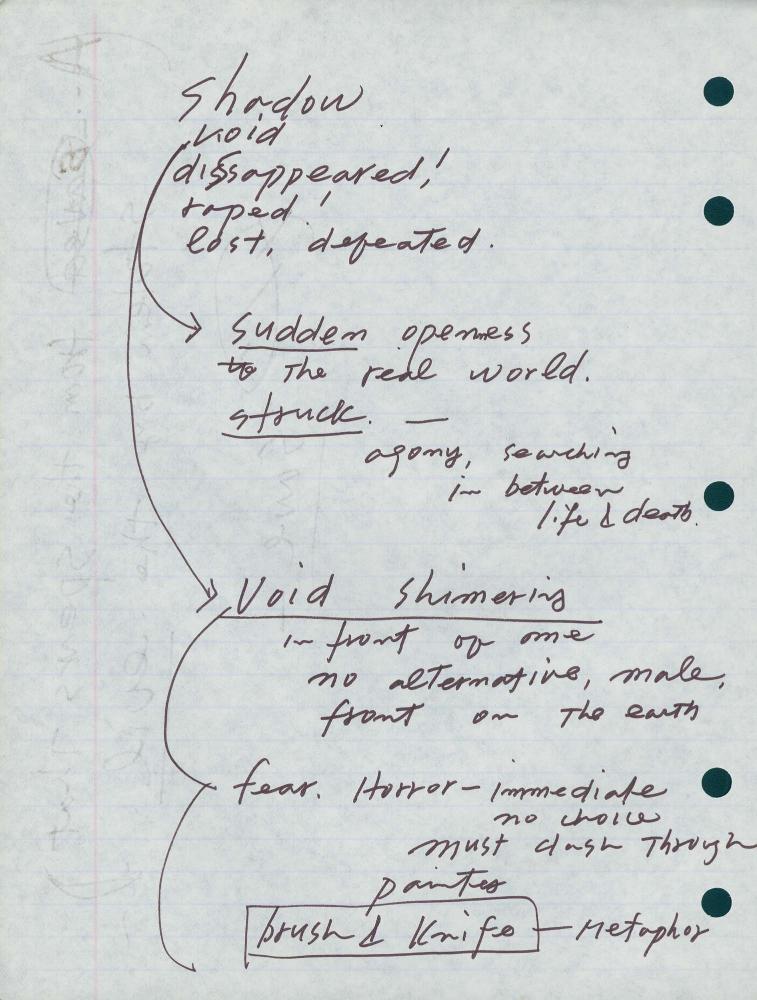 Shadow
void
dissappeared!
raped!
lost, defeated.
sudden openness
to the real world.
struck. —
agony, searching
in between
life & death.
Void shimering
in front of one
no alternative, male,
front on the earth
fear. Horror - immediate
no choice
must dash Through
painter
brush & Knife — Metaphor